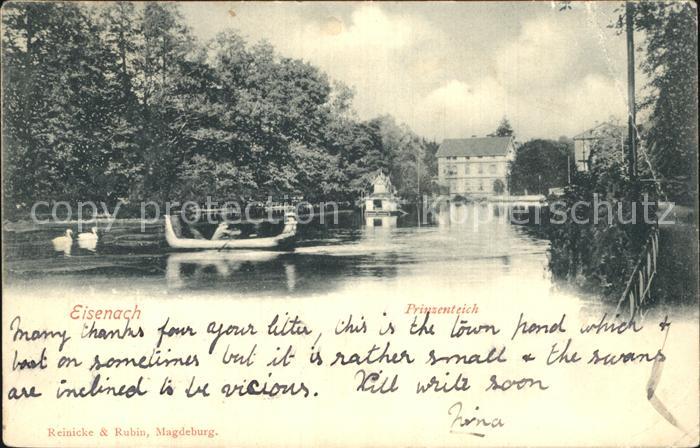 copyright Kopierschutz
Eisenach Prinzenteich
Many thanks four your letter, this is the town pond which I
boat on sometimes but it is rather small & the swans
are inclined to be vicious. Will write soon
Reinicke & Rubin, Magdeburg.